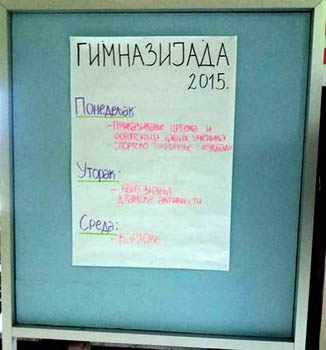 ГИМНАЗИЈАДА
2015.
Понедељак:
- Приказивање цртежа и
фотографија наших ученика
- Спортско такмичење (фудбал)
Уторак:
- Квиз знања
Драмске активности
Среда:
- Караоке